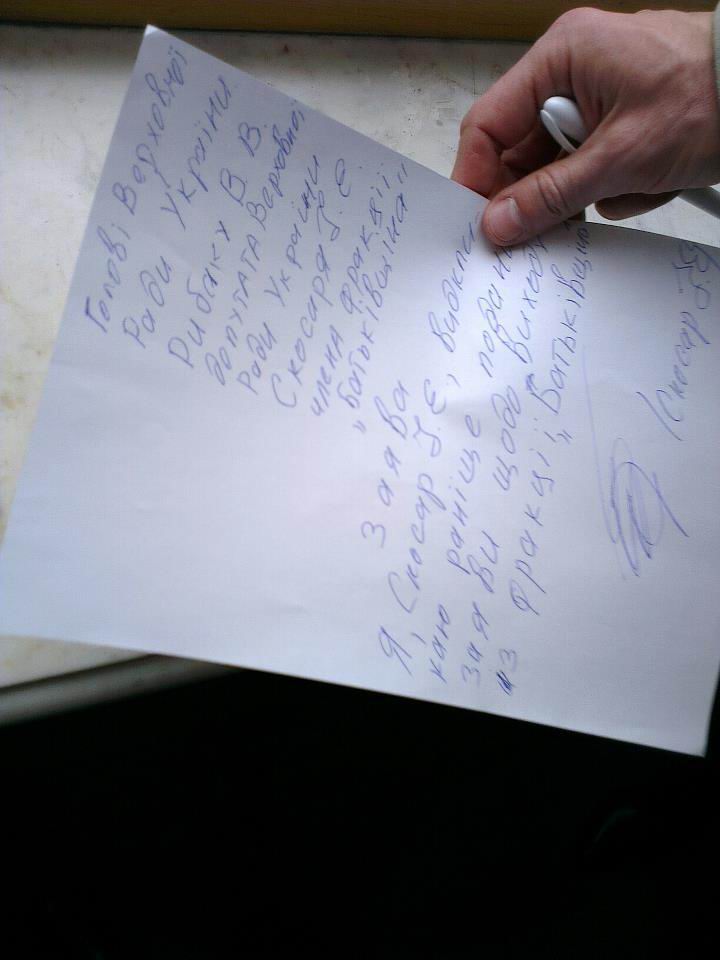 Голові Верховної
Ради України
Рибаку В. В.
депутата Верховної
Ради України
Скосаря Ї. Є
члена фракції
„Батьківщина"
Заява
Я, Скосар Ї. Є, відкли
каю раніше подані
заяви щодо виходу
із фракції
„Батьківщина"
/Скосар Ї. Є